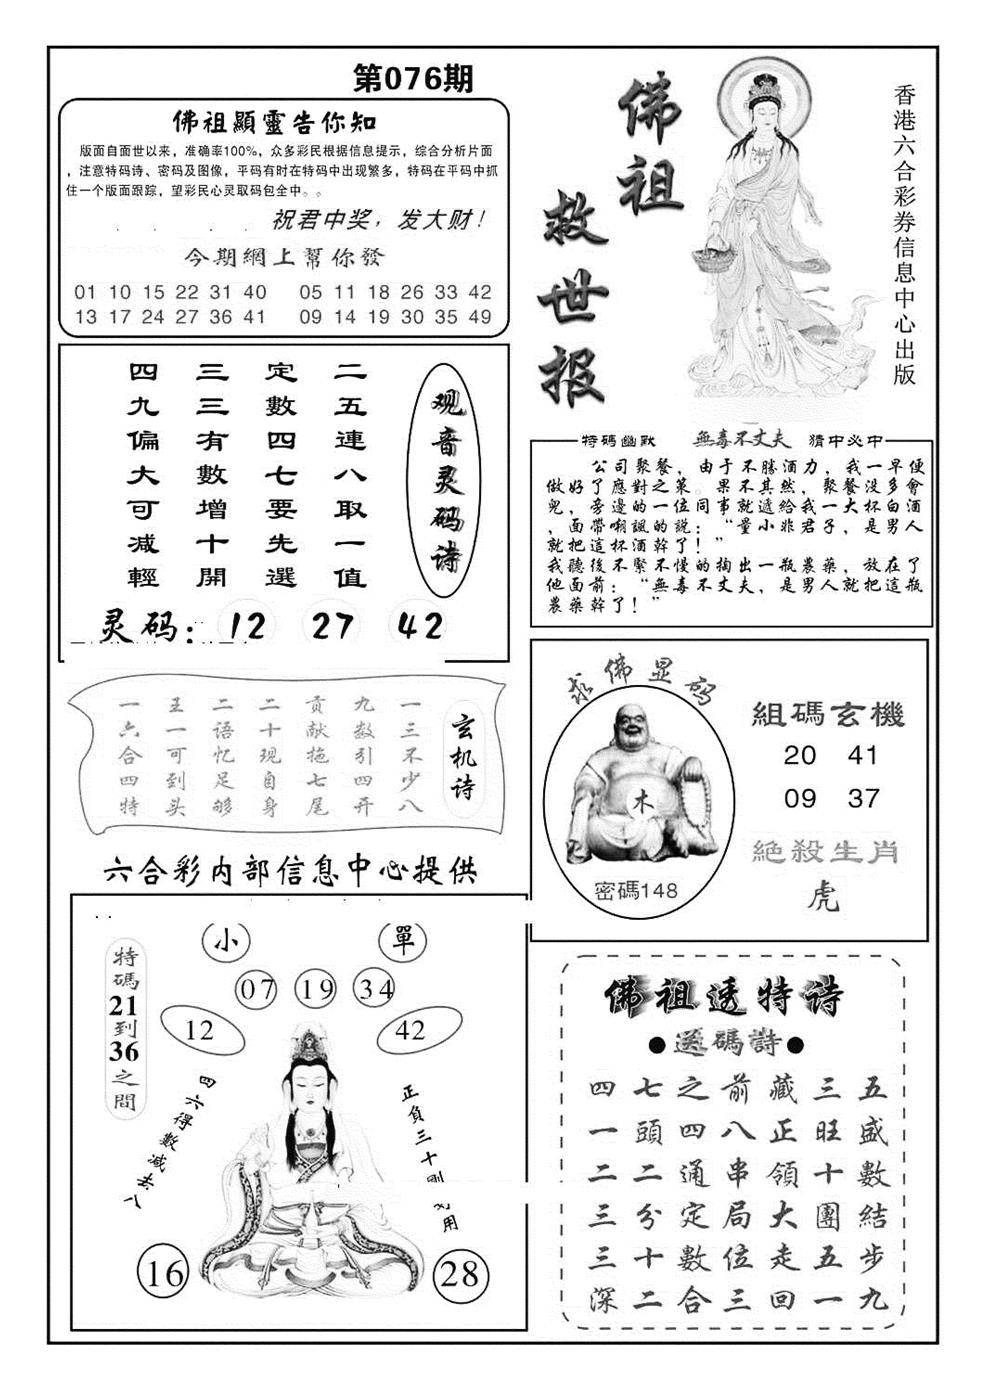 第076期
佛祖顯靈告你知
版面自面世以来，准确率100%，众多彩民根据信息提示，综合分析片面
，注意特码诗、密码及图像，平码有时在特码中出现繁多，特码在平码中抓
住一个版面跟踪，望彩民心灵取码包全中。。
祝君中奖，发大财！
今期網上幫你發
01 10 15 22 31 40 05 11 18 26 33 42
13 17 24 27 36 41 09 14 19 30 35 49
佛祖
救世报
香港六合彩券信息中心出版
观音灵码诗
二五連八取一值
定數四七要先選
三三有數增十開
四九偏大可减輕
灵码：12 27 42
特碼幽默 無毒不丈夫 猜中必中
公司聚餐，由于不勝酒力，我一早便
做好了應對之策。果不其然，聚餐没多會
兒，旁邊的一位同事就遞給我一大杯白酒
，面帶嘲諷的説：“量小非君子，是男人
就把這杯酒幹了！”
我聽後不緊不慢的掏出一瓶農藥，放在了
他面前：“無毒不丈夫，是男人就把這瓶
農藥幹了！”
玄机诗
一三不少八
九数引四开
贡献拖七尾
二十现自身
二语忆足够
王一可到头
一六合四特
求佛显码
木
密碼148
組碼玄機
20 41
09 37
絕殺生肖
虎
六合彩内部信息中心提供
小 單
07 19 34
12 42
特碼21到36之間
四六得數减去八
正負三十則
用
16 28
佛祖透特诗
●送碼詩●
四七之前藏三五
一頭四八正旺盛
二二通串領十數
三分定局大團結
三十數位走五步
深二合三回一九